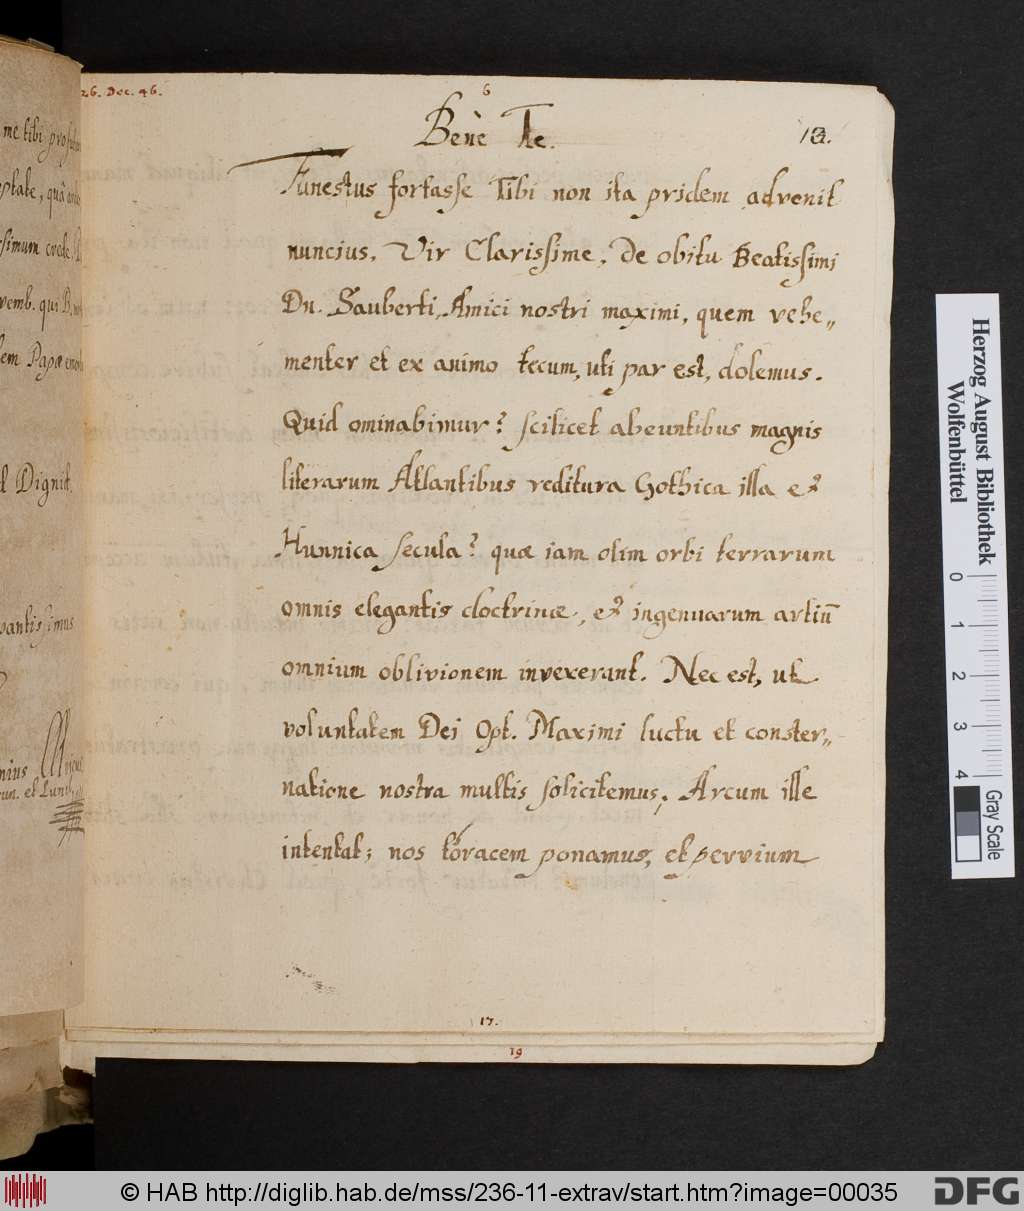 26. Dec. 46.
6
13.
Benè Te.
Funestus fortasse Tibi non ita pridem advenit
nuncius, Vir Clarissime, de obitu Beatissimi
Dn. Sauberti, Amici nostri maximi, quem vehe„
menter et ex animo tecum, uti par est, dolemus.
Quid ominabimur? scilicet abeuntibus magnis
literarum Atlantibus reditura Gothica illa et
Hunnica secula? quæ iam olim orbi terrarum
omnis elegantis doctrinæ, et ingenuarum artiū
omnium oblivionem invexerant. Nec est, ut
voluntatem Dei Opt. Maximi luctu et conster„
natione nostra multis solicitemus. Arcum ille
intentat; nos toracem ponamus, et pervium
17.
19
me tibi
ptate, quâ
simum crede
vemb. qui B.
em Papæ
Dignit.
vantissimus
nius
un. et Lun
Herzog August Bibliothek
Wolfenbüttel
0 1 2 3 4
Gray Scale
© HAB http://diglib.hab.de/mss/236-11-extrav/start.htm?image=00035
DFG